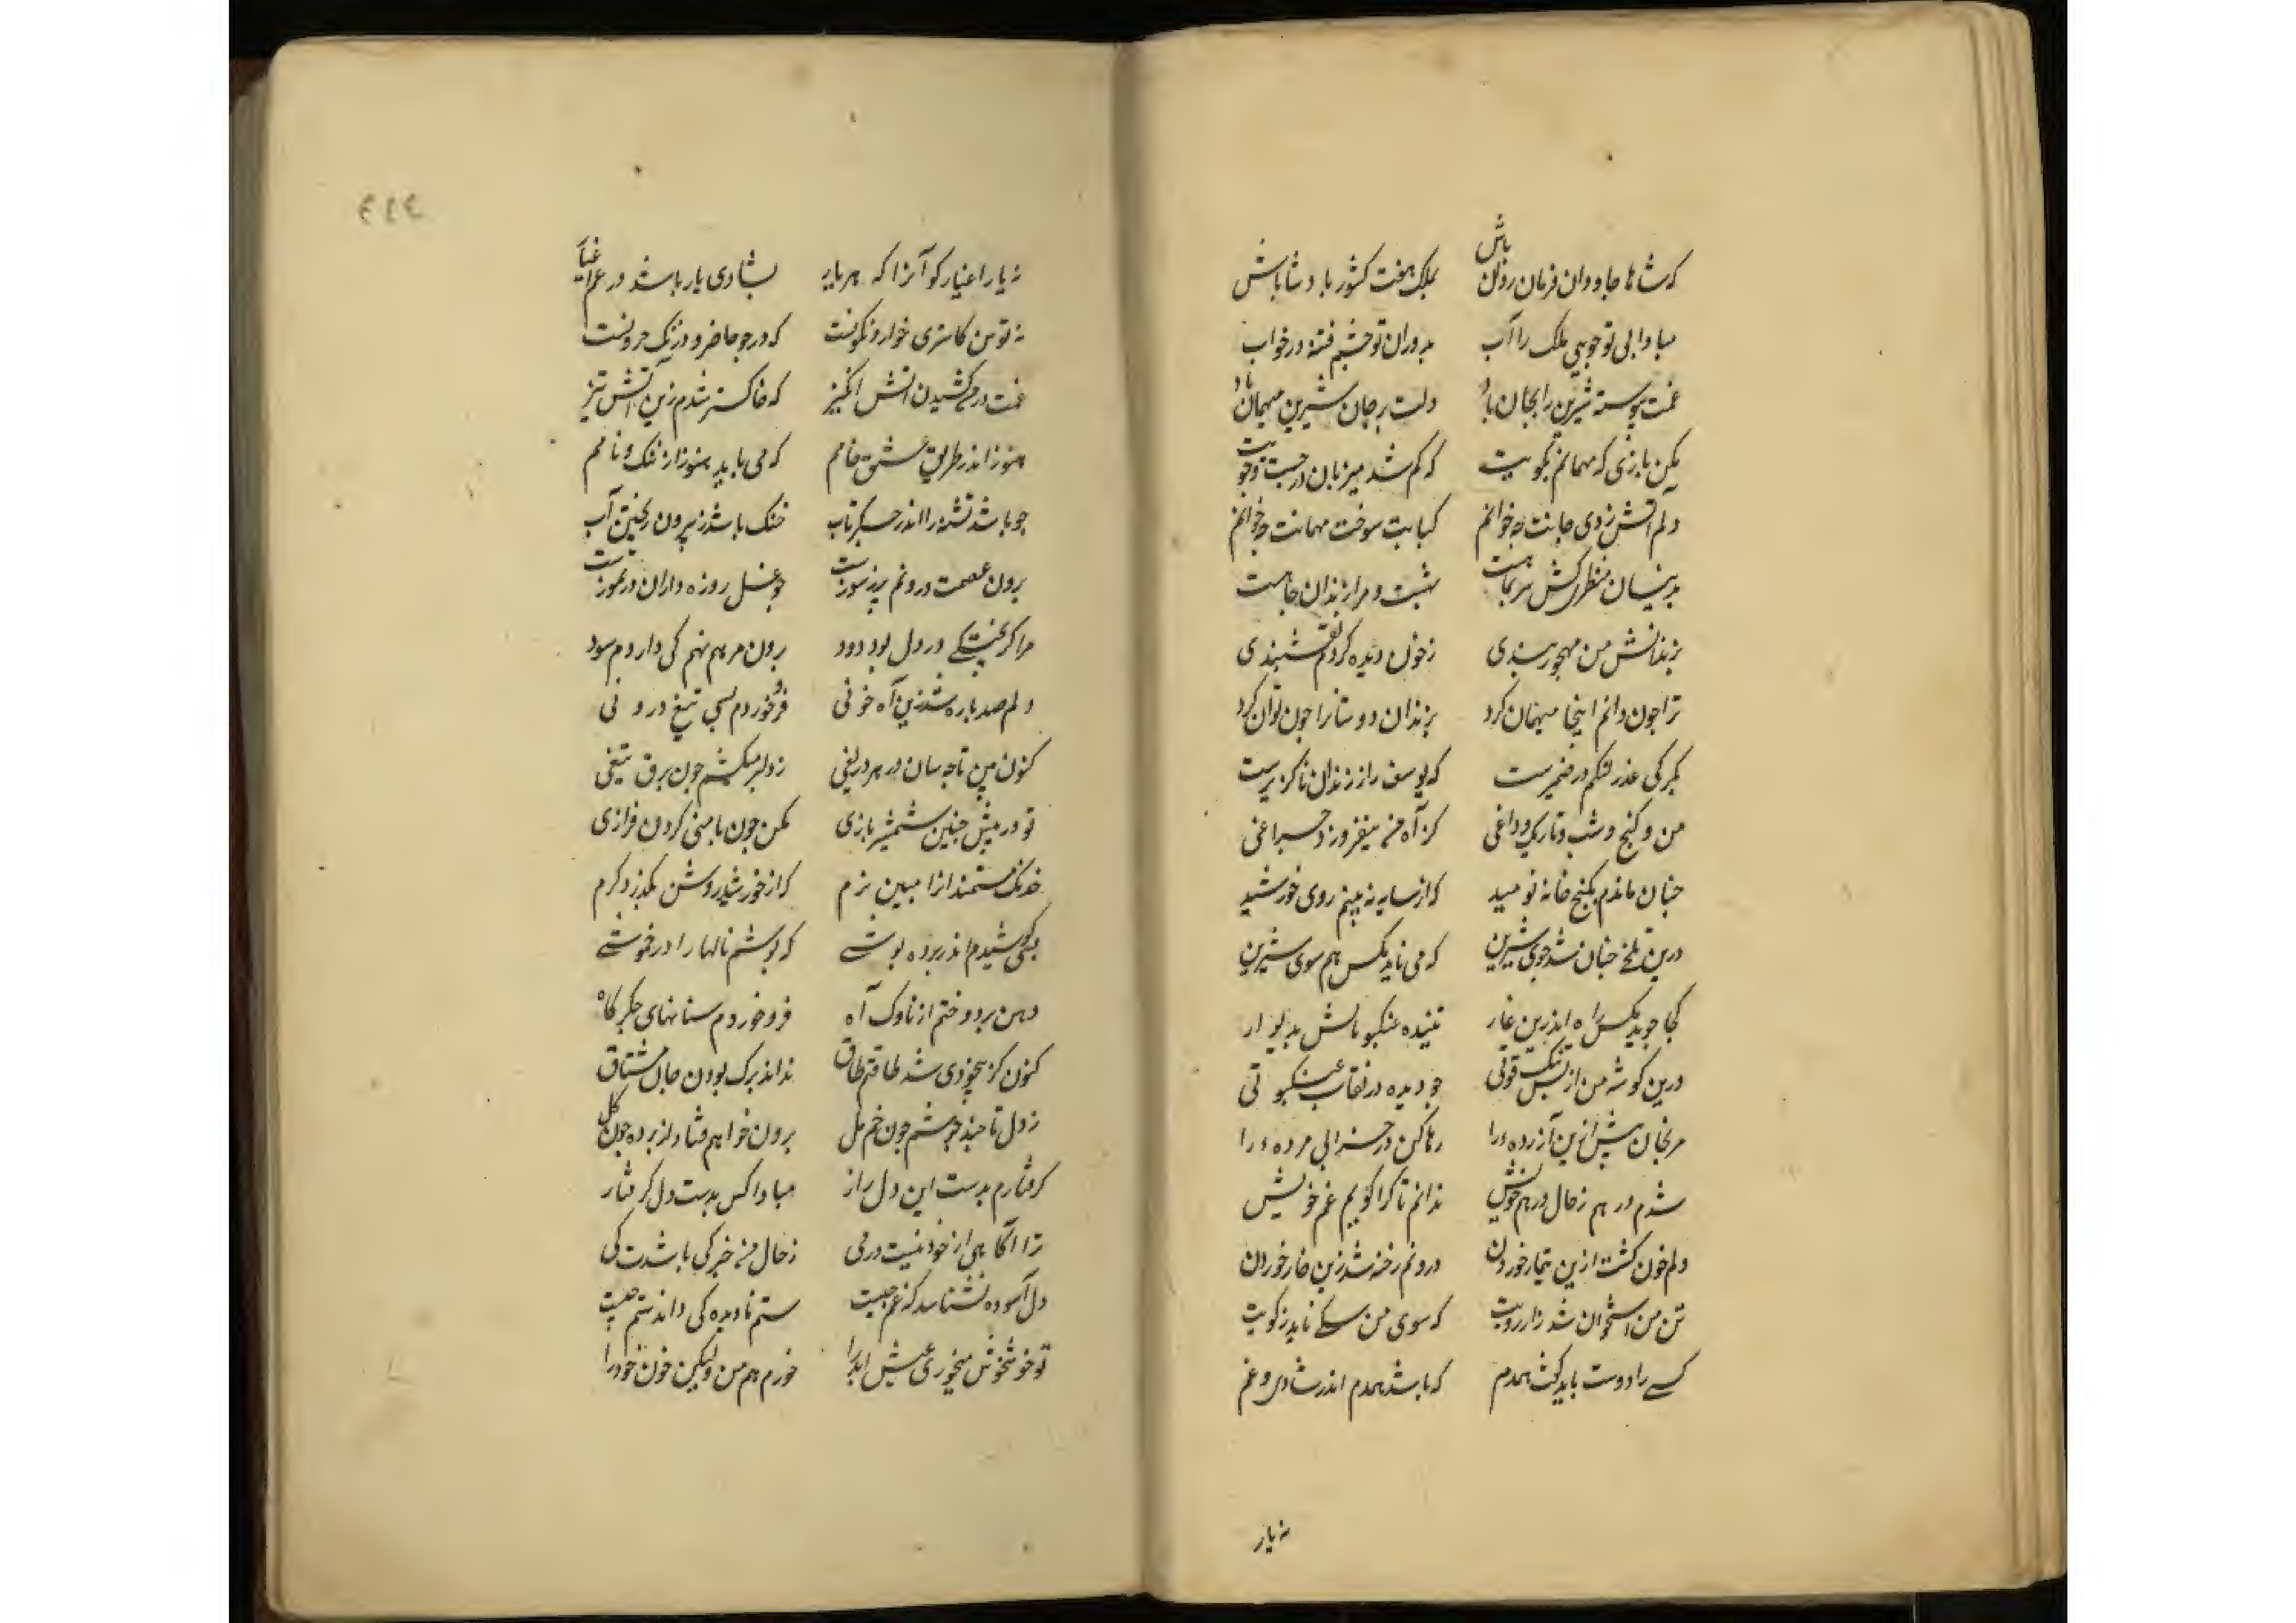 که شاها جاودان فرمان روان باش بملک هفت کشور بادشا باش
مبادا بی تو جویی ملک را آب بدوران تو چشم فتنه در خواب
غمت پیوسته شیرین را بجان باد دلت بر جان شیرین میهمان باد
مکن بازی که مهمانم بکویت که کم شد میزبان در جست و جویت
دلم آتش زدی جانت چه خوانم کبابت سوخت مهمانت چه خوانم
بدینسان منظری کش سر بماهست بهشت و مرا زندان جاهست
بزندانش من مهجور بندی ز خون دیده کردم نقشبندی
ترا چون دانم اینجا میهمان کرد بزندان دوستانرا چون توان کرد
مکیر کی عذر لنکم در ضمیرست که یوسف را ز زندان ناکزیرست
من و کنج و شب و تاریک و داغی کز آه من بیفروزد چراغی
چنان ماندم بکنج خانه نومید که از سایه نه بینم روی خورشید
درین تلخی چنان شد خوی شیرین که می ناید مکس هم سوی شیرین
کجا جوید مکس راه اندرین غار تنیده عنکبوتانش بدیوار
درین کوشه من از بس تنک قوتی چو دیده در نقاب عنکبوتی
مرنجان بیش ازین آزرده را رها کن در خرابی مرده را
شدم در هم ز حال درهم خویش ندانم تا کرا کویم غم خویش
دلم خون کشت ازین تیمار خوردن درونم رخنه شد زین خار خوردن
تن من استخوان شد زار رویت که سوی من سکی ناید ز کویت
کسی را دوست باید کفت همدم که باشد همدم اندر شادی و غم
نه یار
٤٤٤
نه یار اغیار کو آنرا که هر بار بشادی یار باشد در غم اغیار
نه تو من کاستری خوار و نکونست که در جو جا ضرو در نیک
غمت در می کشیدن آتش انکیز که خاکستر شدم زین آتش تیز
هنوز اندر طریق عشق خامم که می باید هنوز از ننک و نامم
چو باشد تشنه را اندر جکر تاب خنک باشد ز بیرون ریختن آب
برون عصمت درونم پر ز سوزست چو غسل روزه داران در تموزست
مرا کز خستکی در دل بود دود برون مرهم نهم کی داردم سود
دلم صد باره شد زین آه خونی فرو خوردم بسی تیغ درونی
کنون من تا چه سان در هر دریغی ز دل بر میکشم چون برق تیغی
تو در پیش چنین شمشیر بازی مکن چون با منی کردن فرازی
خدنک مستمندانرا مبین نرم که از خورشید روشن بکذرد کرم
بسی کوشیدم اندر پرده پوشی که پوشم نالها را در خموشی
دهن بر دوختم از ناوک آه فرو خوردم سنانهای جکر کاه
کنون کز بیخودی شد طاقتم طاق نداند برک بودن جان مشتاق
ز دل تا چند جوشم چون خم مل برون خواهم فتاد از پرده چون کل
کرفتارم بدست این دل زار مبادا کس بدست دل کرفتار
ترا آکاهی از خود نیست در می ز حال من خبر کی باشدت کی
دل آسوده نشناسد که غم چیست ستم نادیده کی داند ستم چیست
تو خوش خوش میخوری عیش ابد را خورم هم من ولیکن خون خود را